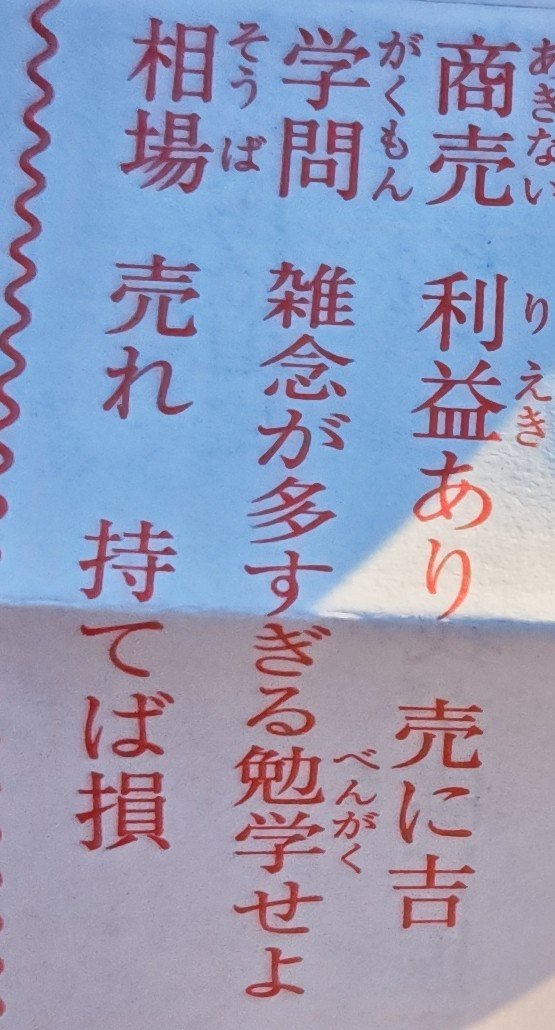 商売 利益あり 売に吉
あきない りえき
学問 雑念が多すぎる勉学せよ
がくもん べんがく
相場 売れ 持てば損
そうば